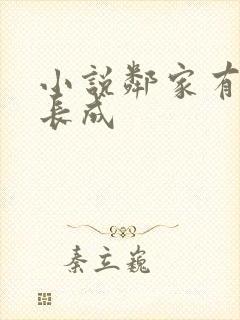 小說鄰家有
長成
秦立巍